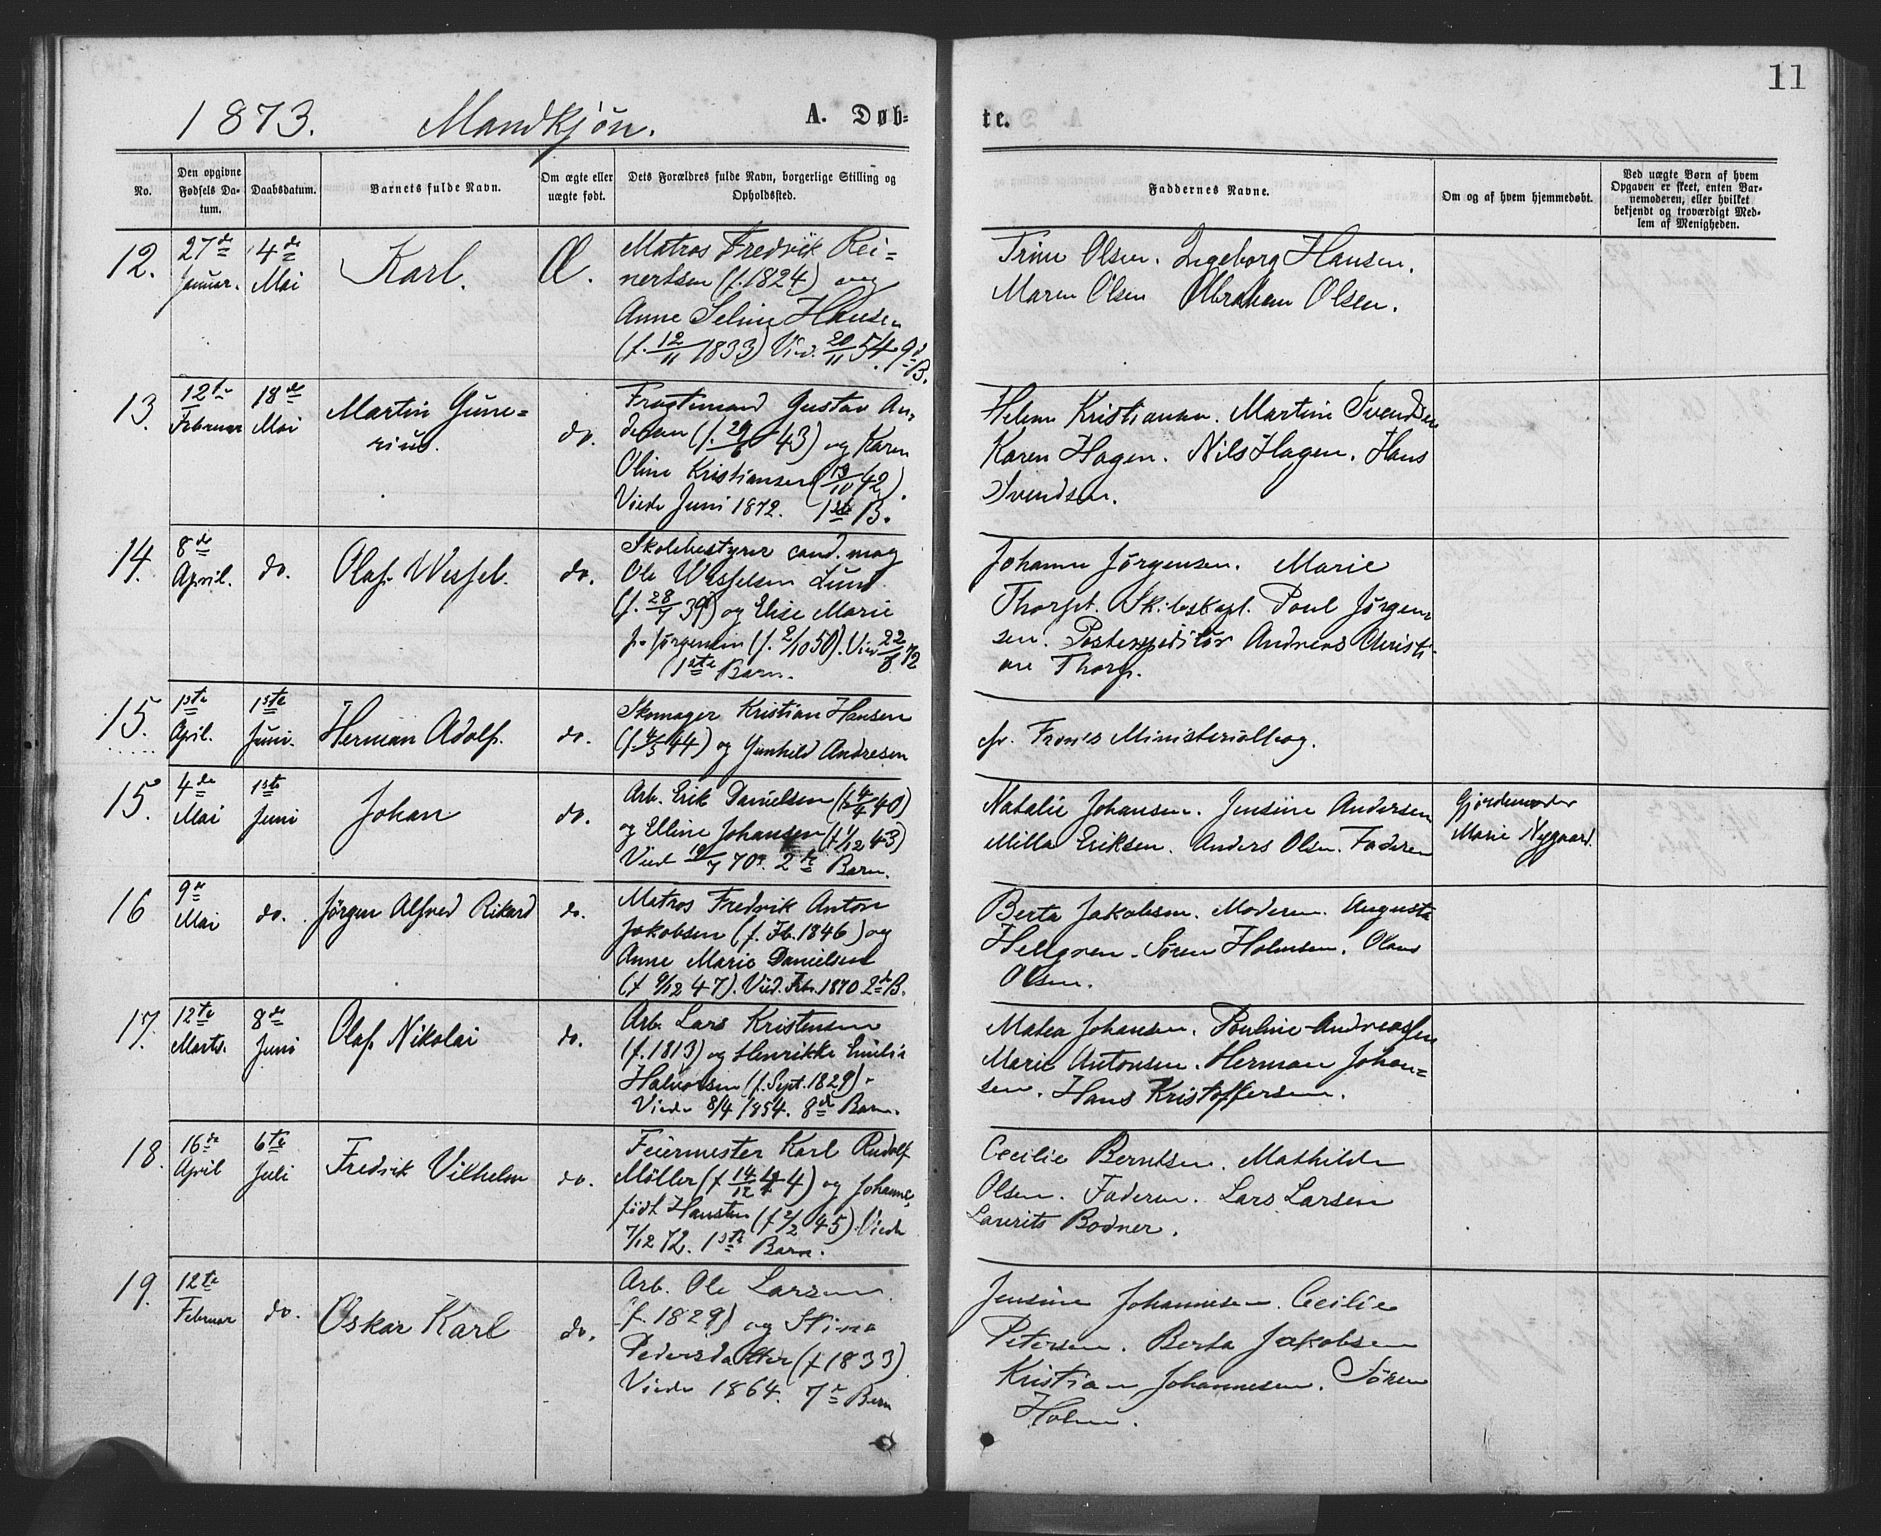 11
1873. Mandkjøn. A. Døbte.
No.
Den opgivne Fødsels Datum.
Daabsdatum.
Barnets fulde Navn.
Om ægte eller uægte født.
Dets Forældres fulde Navn, borgerlige Stilling og Opholdssted.
Faddernes Navne.
Om og af hvem hjemmedøbt.
Ved uægte Børn af hvem Opgaven er skeet, enten Barnemoderen, eller hvilket bekjendt og troværdigt Medlem af Menigheden.
12.
27de Januar.
4de Mai
Karl.
Æ.
Matros Fredrik Rei=
nertsen (f. 1824) og
Anne Seline Hansen
(f. 12/11 1833) Vied. 20/11 54. 9de B.
Trine Olsen. Ingeborg Hansen.
Maren Olsen Abraham Olsen.
13.
12te Februar
18de Mai
Martin Gune=
rius.
do.
Fragtmand Gustav An
dersen (f. 29/6 43) og Karen
Oline Kristiansen (13/10 42).
Viede Juni 1872. 1ste B.
Helene Kristiansen. Martine Svendsen
Karen Hagen. Nils Hagen. Hans
Svendsen.
14.
8de April.
do.
Olaf Wessel.
do.
Skolebestyrer cand. mag
Ole Wesselsen Lund
(f. 28/7 39) og Elise Marie
f. Jørgensen (f. 2/10 50). Vied 22/8 72
(1ste Barn.
Johanne Jørgensen. Marie
Thorp. Skibskapt. Poul Jørgen
sen. Postexpeditør Andreas Christi
an Thorp.
15.
1ste April.
1ste Juni.
Herman Adolf.
do.
Skomager Kristian Hansen
(f. 4/5 44) og Gunhild Andresen
cfr. Fron's Ministerialbog.
15.
4de Mai
1ste Juni
Johan
do.
Arb. Erik Danielsen (f 4/4 40)
og Elline Johansen (f 1/12 43)
Viede 10/7 70. 2de Barn.
Natalie Johansen. Jensine Andersen
Milla Eriksen. Anders Olsen. Faderen
Gjordemoder
Marie Nygaard.
16
9de Mai
do.
Jørgen Alfred Rikard
do.
Matros Fredrik Anton
Jakobsen (f. Fb. 1846) og
Anne Marie Danielsen
(f 9/12 47). Vied. Feb. 1870 2de B.
Berta Jakobsen. Moderen. Augusta
Hellgren. Søren Holmsen. Olaus
Olsen.
17.
12te Marts.
8de Juni
Olaf Nikolai
do.
Arb. Lars Kristensen
(f. 1813) og Henrikke Emilie
Halvorsen (f. Sept. 1829).
Viede 8/4 1854. 8de Barn.
Matea Johansen. Pouline Andreassen
Marie Antonsen. Herman Johan=
sen. Hans Kristoffersen.
18.
16de April
6te Juli
Fredrik Vilhelm
do.
Feiermester Karl Rudolf
Møller (f 14/12 44) og Johanne,
født Hansten (f 2/2 45). Viede
7/12 72. 1ste Barn.
Cecilie Berntsen. Mathilde
Olsen. Faderen. Lars Larsen
Laurits Bodner.
19.
12te Februar
do.
Oskar Karl
do.
Arb. Ole Larsen
(f. 1829) og Stine
Pedersdatter (f 1833)
Viede 1864. 7de Barn
Jensine Johannesen. Cecilie
Petersen. Berta Jakobsen
Kristian Johannesen. Søren
Holm.